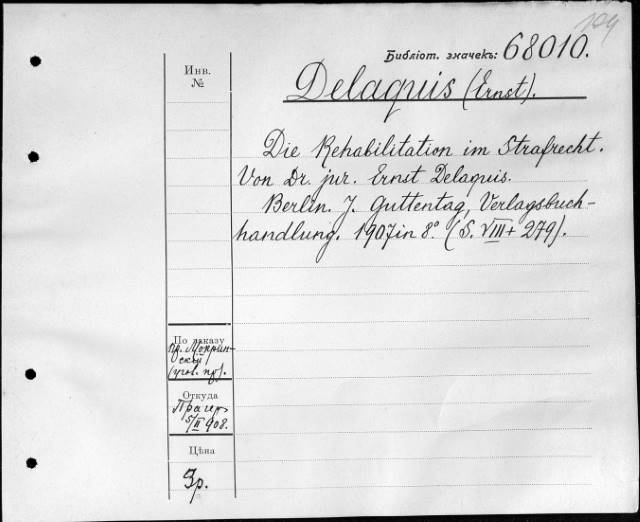 104
Библіот. значекъ: 68010.
Инв.
№
Delaquis (Ernst).
Die Rehabilitation im Strafrecht.
Von Dr. jur. Ernst Delaquis.
Berlin. J. Guttentag, Verlagsbuch-
handlung. 1907 in 8º. (S. VIII + 279).
По заказу
пр. Мокрин-
скій
(угол. пр.).
Откуда
Прагеръ
5/II 908.
Цѣна
3р.